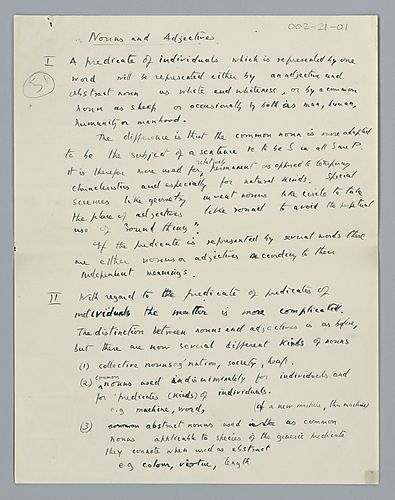 002-21-01
Nouns and Adjectives
I A predicate of individuals which is represented by one
word will be represented either by an adjective and
abstract noun as white and whiteness, or by a common
noun as sheep or occasionally by both as man, human,
humanity or manhood.
The difference is that the common noun is more adapted
to be the subject of a sentence ie to be S in all S are P.
it is therefore more used for, relatively permanent as opposed to temporary
characteristics and especially for natural kinds. Special
sciences like geometry invent nouns like circle to take
the place of adjectives like round to avoid the perpetual
use of "round thing".
If the predicate is represented by several words these
are either nouns or adjectives according to their
independent meanings.
II With regard to the predicate of predicates of
individuals the matter is more complicated.
The distinction between nouns and adjectives is as before,
but there are now several different kinds of nouns
(1) collective nouns eg nation, society, heap.
(2) common nouns used indiscriminately for individuals and
for predicates (kinds) of individuals.
e.g machine, word, (of a new machine, this machine)
(3) abstract nouns used as common
nouns applicable to species of the generic predicate
they connote when used as abstract
eg colour, virtue, length